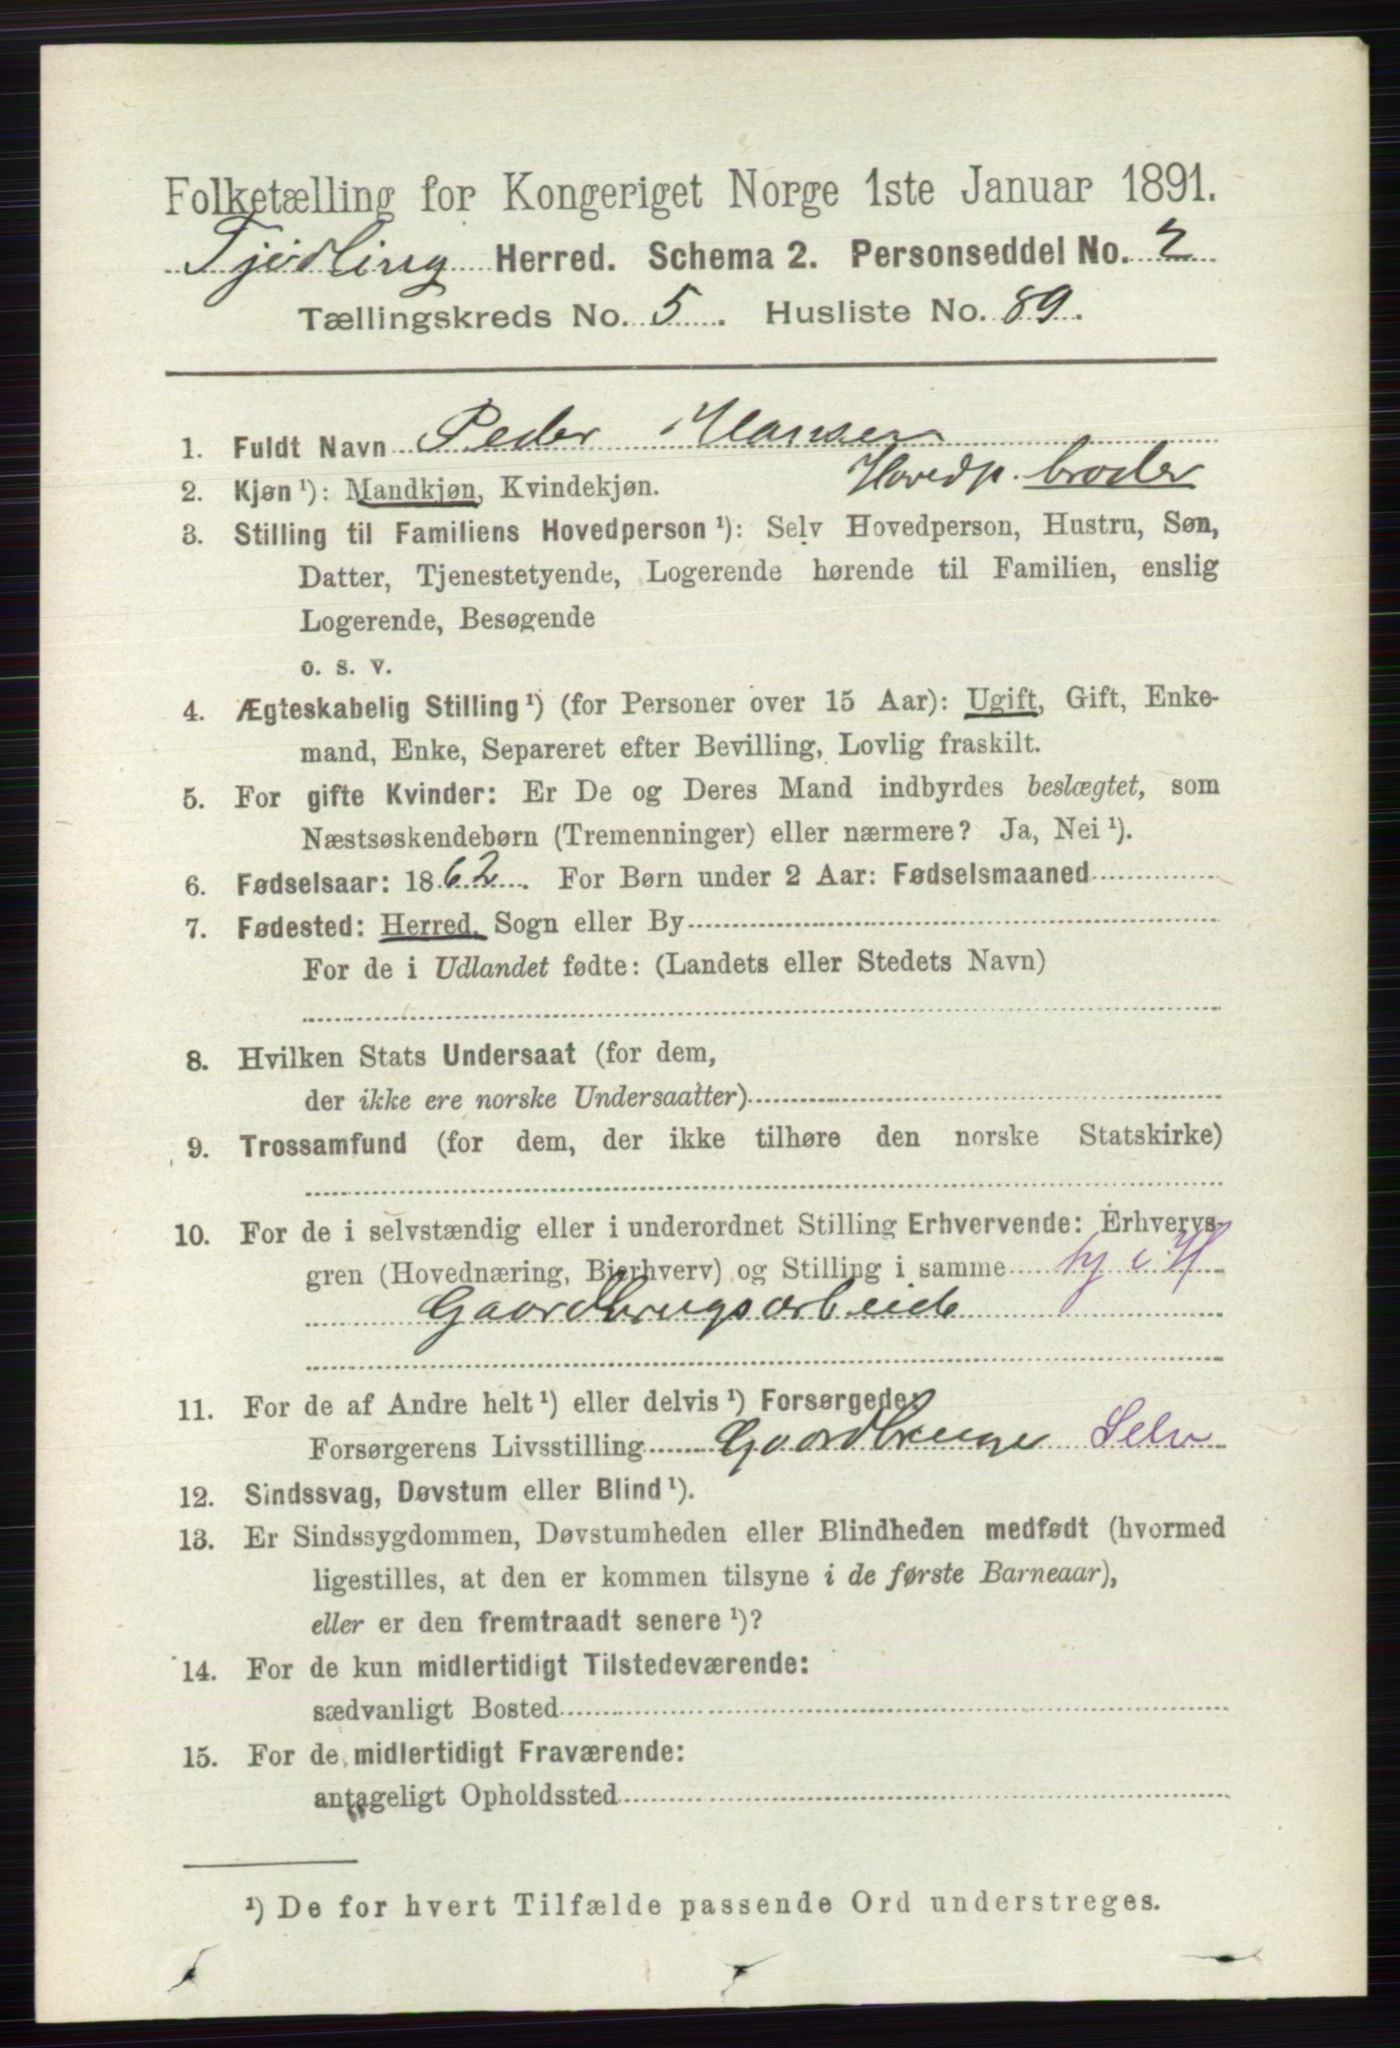 Folketælling for Kongeriget Norge 1ste Januar 1891.
Tjødling Herred. Schema 2. Personseddel No. 2
Tællingskreds No. 5. Husliste No. 89.
1. Fuldt Navn Peder Hansen
2. Kjøn ¹): Mandkjøn, Kvindekjøn. Hovedp. broder
3. Stilling til Familiens Hovedperson ¹): Selv Hovedperson, Hustru, Søn,
Datter, Tjenestetyende, Logerende hørende til Familien, enslig
Logerende, Besøgende
o. s. v.
4. Ægteskabelig Stilling ¹) (for Personer over 15 Aar): Ugift, Gift, Enke-
mand, Enke, Separeret efter Bevilling, Lovlig fraskilt.
5. For gifte Kvinder: Er De og Deres Mand indbyrdes beslægtet, som
Næstsøskendebørn (Tremenninger) eller nærmere? Ja, Nei ¹).
6. Fødselsaar: 1862. For Børn under 2 Aar: Fødselsmaaned
7. Fødested: Herred, Sogn eller By
For de i Udlandet fødte: (Landets eller Stedets Navn)
8. Hvilken Stats Undersaat (for dem,
der ikke ere norske Undersaatter)
9. Trossamfund (for dem, der ikke tilhøre den norske Statskirke)
10. For de i selvstændig eller i underordnet Stilling Erhvervende: Erhvervs-
gren (Hovednæring, Bierhverv) og Stilling i samme hj i H
Gaardbrugsarbeide
11. For de af Andre helt ¹) eller delvis ¹) Forsørgede:
Forsørgerens Livsstilling Gaardbruger Selv
12. Sindssvag, Døvstum eller Blind ¹).
13. Er Sindssygdommen, Døvstumheden eller Blindheden medfødt (hvormed
ligestilles, at den er kommen tilsyne i de første Barneaar),
eller er den fremtraadt senere ¹)?
14. For de kun midlertidigt Tilstedeværende:
sædvanligt Bosted
15. For de midlertidigt Fraværende:
antageligt Opholdssted
¹) De for hvert Tilfælde passende Ord understreges.